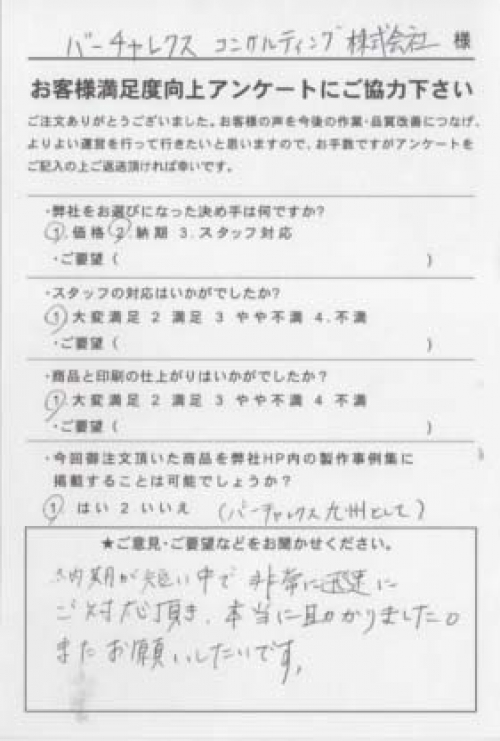 バーチャレクス コンサルティング 株式会社 様
お客様満足度向上アンケートにご協力下さい
ご注文ありがとうございました。お客様の声を今後の作業・品質改善につなげ、
よりよい運営を行って行きたいと思いますので、お手数ですがアンケートを
ご記入の上ご返送頂ければ幸いです。
・弊社をお選びになった決め手は何ですか?
1.価格 2.納期 3.スタッフ対応
・ご要望( )
・スタッフの対応はいかがでしたか?
1 大変満足 2 満足 3 やや不満 4.不満
・ご要望( )
・商品と印刷の仕上がりはいかがでしたか?
1 大変満足 2 満足 3 やや不満 4 不満
・ご要望( )
・今回御注文頂いた商品を弊社HP内の製作事例集に
掲載することは可能でしょうか?
1 はい 2 いいえ (バーチャレクス九州として)
★ご意見・ご要望などをお聞かせください。
納期が短い中で非常に迅速に
ご対応頂き、本当に助かりました。
またお願いしたいです。